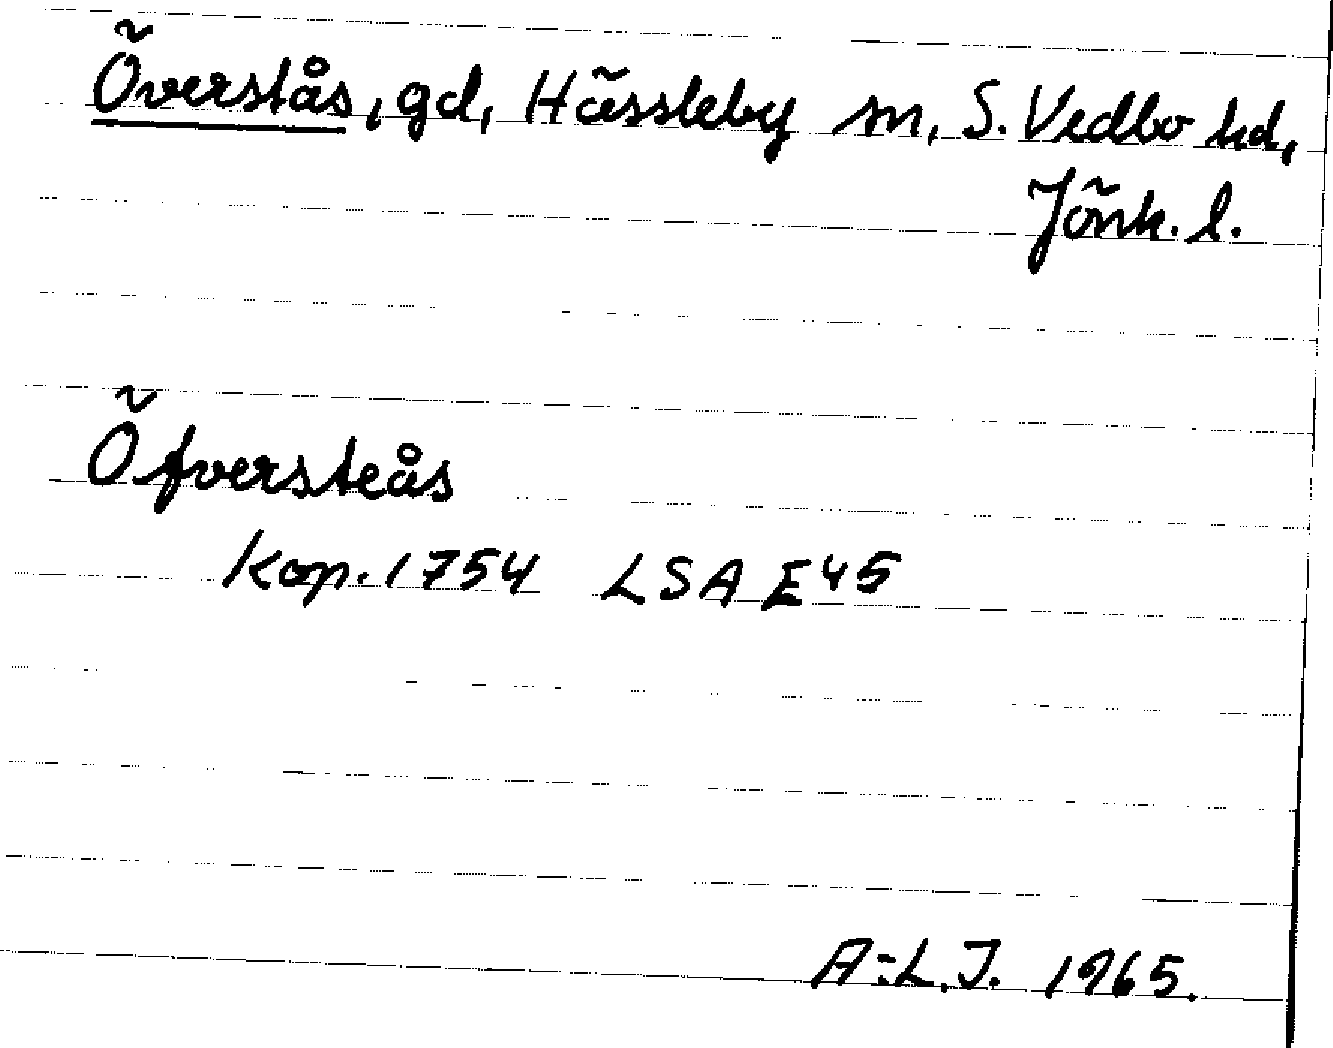 Överstås, gd, Hässleby sn, S. Vedbo hd,
Jönk. l.
Öfversteås
kop. 1754 LSA E45
A:L.J. 1965.